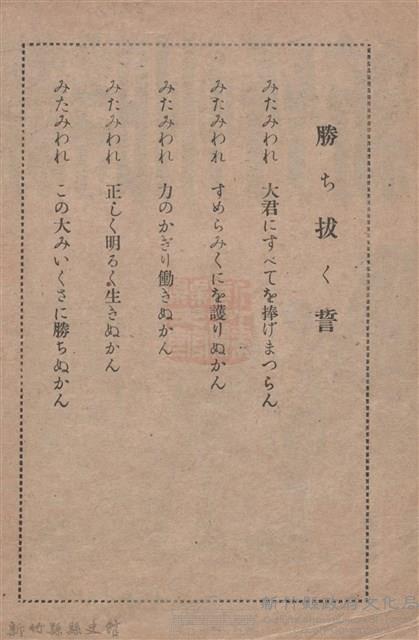 勝ち抜く誓
みたみわれ 大君にすべてを捧げまつらん
みたみわれ すめらみくにを護りぬかん
みたみわれ 力のかぎり働きぬかん
みたみわれ 正しく明るく生きぬかん
みたみわれ この大みいくさに勝ちぬかん
新竹縣縣史館
新竹縣政府文化局